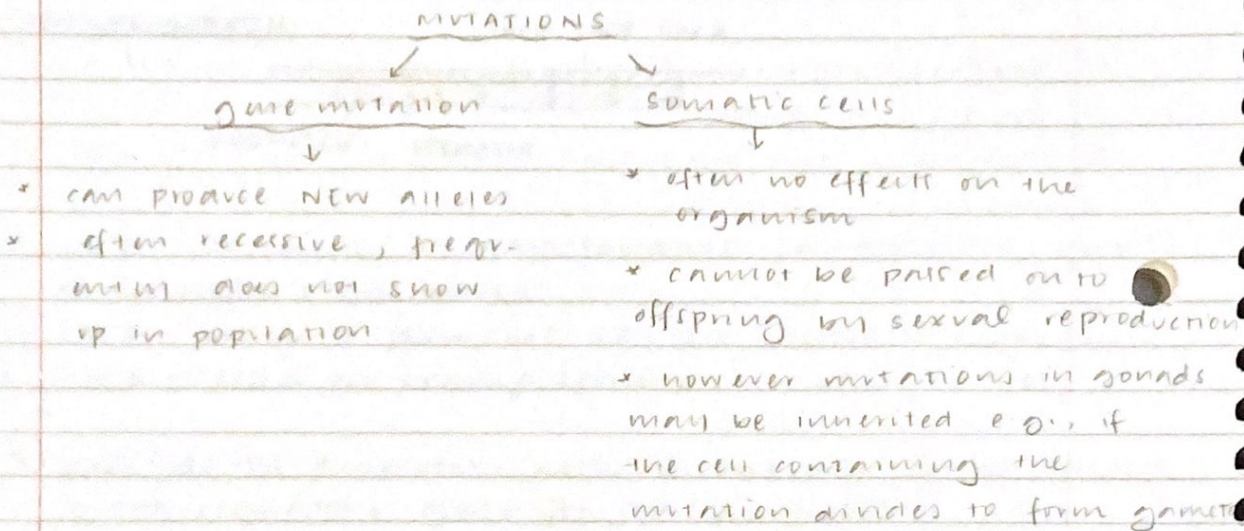 MUTATIONS
gene mutation
* can produce NEW alleles
* often recessive, frequ-
does not show
up in population
somatic cells
* often no effects on the
organism
* cannot be passed on to
offspring by sexual reproduction
* however mutations in gonads
may be inherited e.g., if
the cell containing the
mutation divides to form